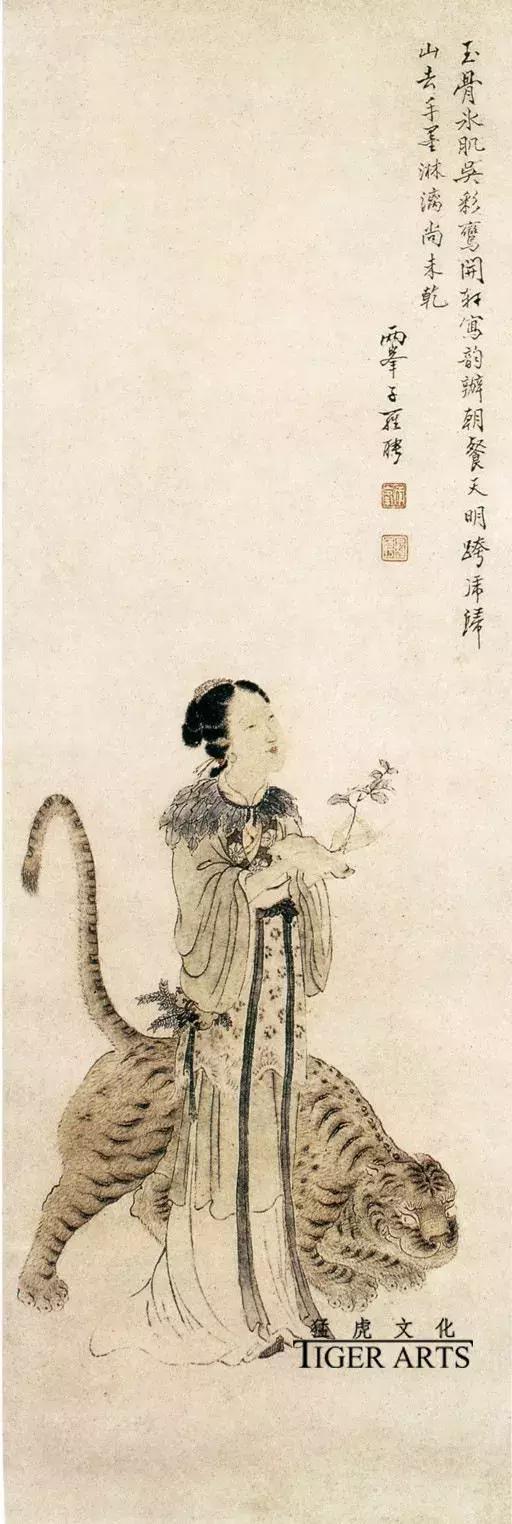 玉骨氷肌吳彩鸞開軒寫韵辦朝餐天明跨乕歸
山去手墨淋漓尚未乾
兩峯子羅聘
猛虎文化
TIGER ARTS